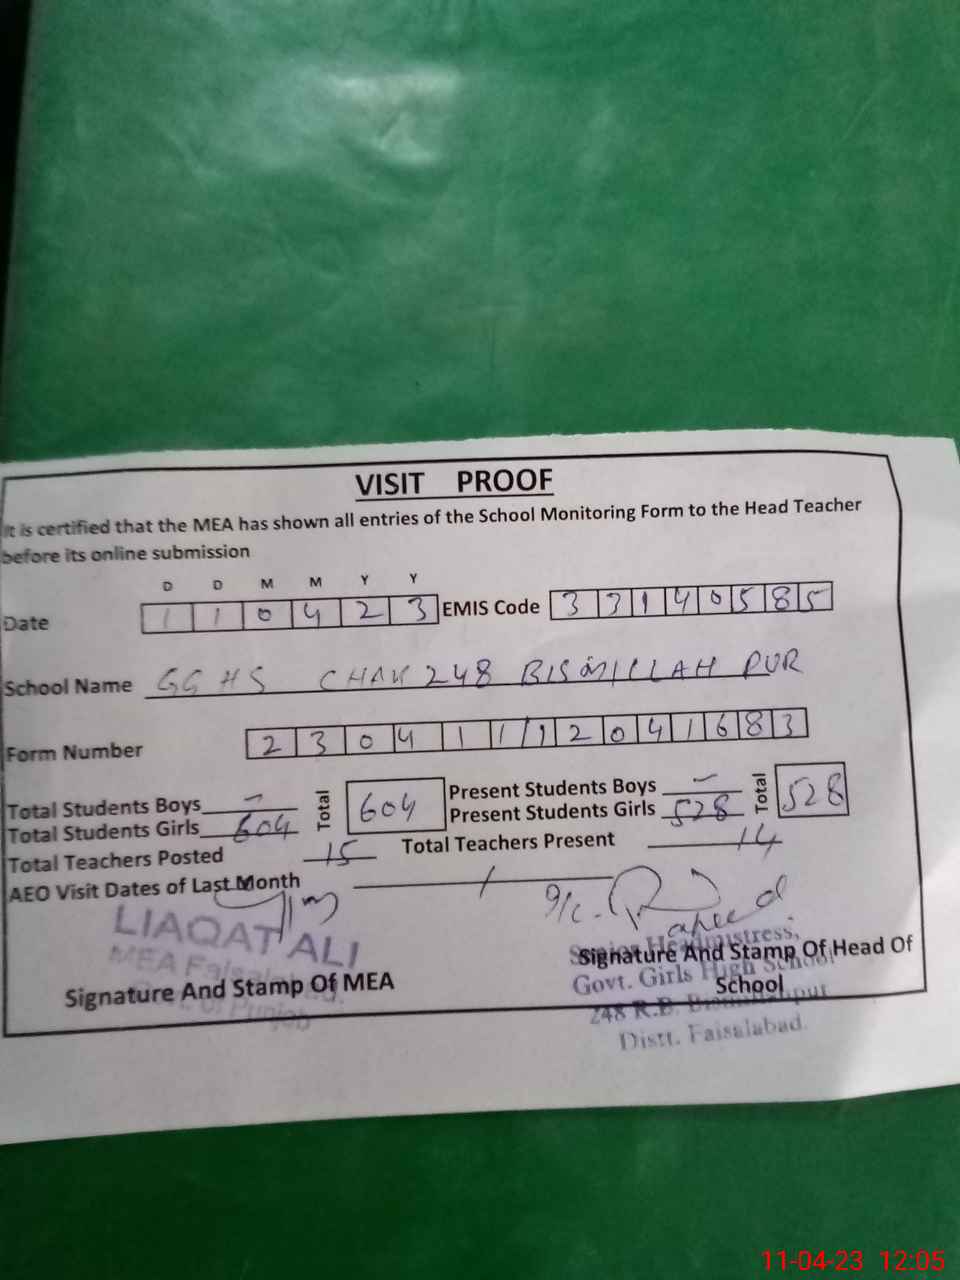 VISIT PROOF
It is certified that the MEA has shown all entries of the School Monitoring Form to the Head Teacher
before its online submission
D D M M Y Y
Date 1 1 0 4 2 3 EMIS Code 3 3 1 4 0 5 8 5
School Name GGHS CHAK 248 BISMILLAH PUR
Form Number 2 3 0 4 1 1 1 2 0 4 1 6 8 3
Total Students Boys - Total 604 Present Students Boys - Total 528
Total Students Girls 604 Present Students Girls 528
Total Teachers Posted 15 Total Teachers Present 14
AEO Visit Dates of Last Month /
LIAQAT ALI
MEA Faisalabad
Signature And Stamp Of MEA
Senior Headmistress,
Signature And Stamp Of Head Of
Govt. Girls High School
School
248 R.B. Bismillahpur
Distt. Faisalabad.
11-04-23 12:05